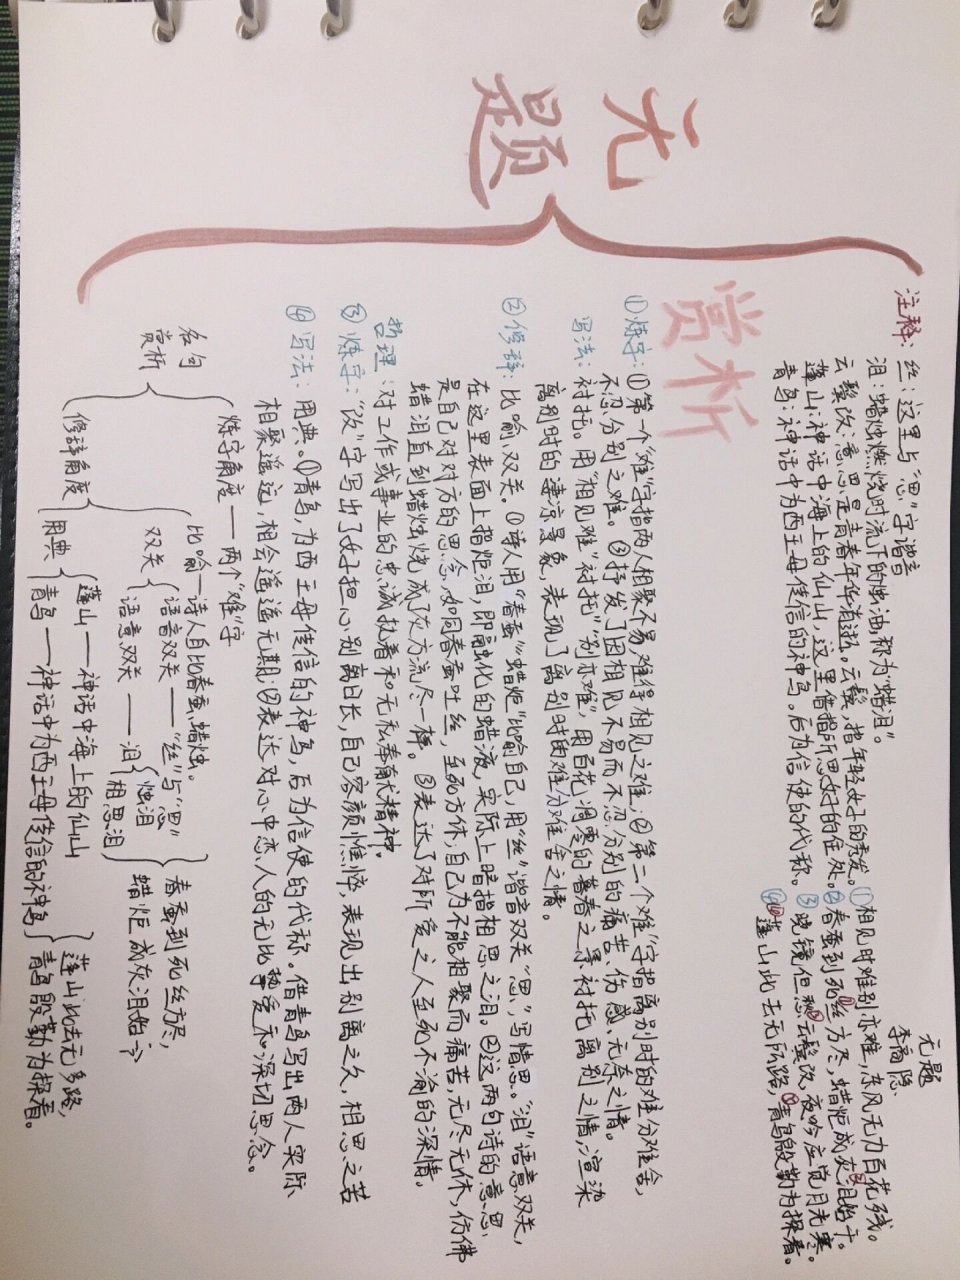 无题
无题
李商隐
①相见时难别亦难,东风无力百花残。
②春蚕到死丝方尽,蜡炬成灰泪始干。
③晓镜但愁云鬓改,夜吟应觉月光寒。
④蓬山此去无所路,青鸟殷勤为探看。
注释:丝:这里与“思”字谐音
泪:蜡烛燃烧时流下的烛油,称为“蜡泪”。
云鬓改:意思是青春年华消逝。云鬓,指年轻女子的秀发。
蓬山:神话中海上的仙山,这里借指所思女子的住处。
青鸟:神话中为西王母传信的神鸟。后为信使的代称。
赏析
①炼字:①第一个“难”字指两人相聚不易,难得相见之难;②第二个“难”字指离别时的难分难舍,
不忍分别之难。③抒发了因相见不易而不忍分别的痛苦、伤感、无奈之情。
写法:衬托。用“相见难”衬托“别亦难”,用百花凋零的暮春之景衬托离别之情,渲染
离别时的凄凉景象,表现了离别时难分难舍之情。
②修辞:比喻、双关 ①诗人用“春蚕”“蜡炬”比喻自己,用“丝”谐音双关“思”,写情思。“泪”语意双关,
在这里表面上指炬泪,即融化的蜡液,实际上暗指相思之泪。②这两句诗的意思
是自己对对方的思念,如同春蚕吐丝,至死方休,自己为不能相聚而痛苦,无尽无休,仿佛
蜡泪直到蜡烛烧成了灰方流尽一样。③表达了对所爱之人至死不渝的深情。
哲理:对工作或事业的忠诚执着和无私奉献精神。
③炼字:“改”字写出了女子担心别离日长,自己容颜憔悴,表现出别离之久,相思之苦
④写法:用典。①青鸟,为西王母传信的神鸟,后为信使的代称。借青鸟写出两人实际
相聚遥远,相会遥遥无期;②表达对心中恋人的无比挚爱和深切思念。
名句
赏析
炼字角度——两个“难”字
修辞角度
比喻—诗人自比春蚕、蜡烛。
双关
语音双关——“丝”与“思”
语意双关——泪
烛泪
相思泪
春蚕到死丝方尽,
蜡炬成灰泪始干
用典
蓬山——神话中海上的仙山
青鸟——神话中为西王母传信的神鸟
蓬山此去无多路,
青鸟殷勤为探看。